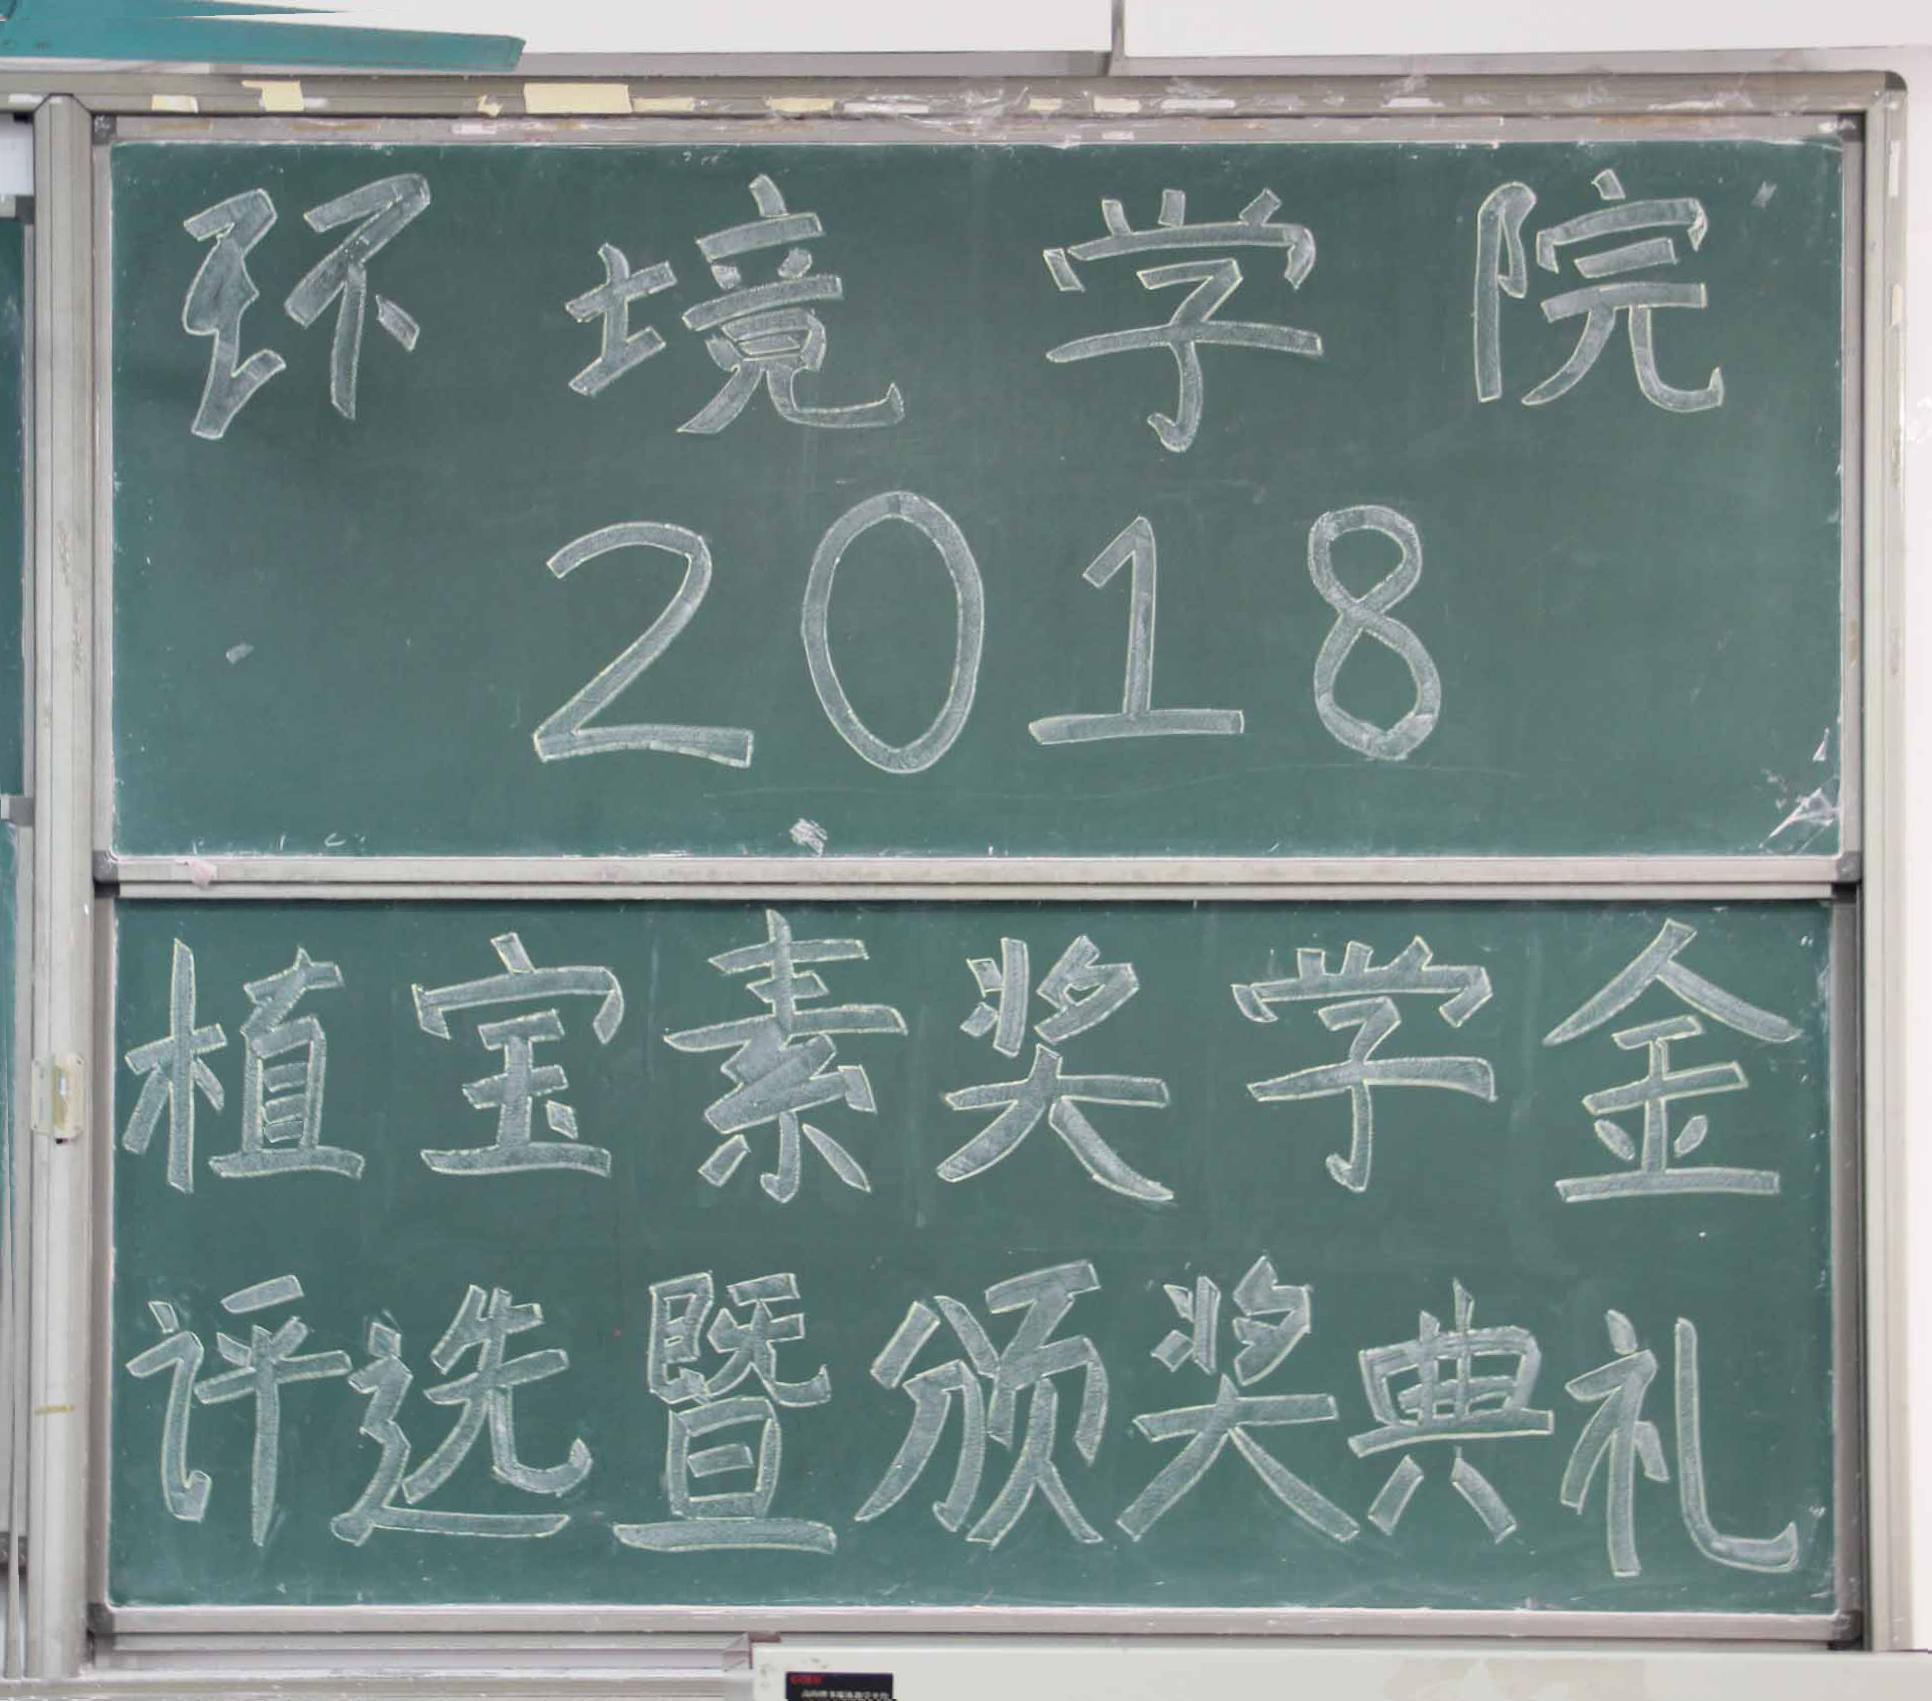 环境学院
2018
植宝素奖学金
评选暨颁奖典礼